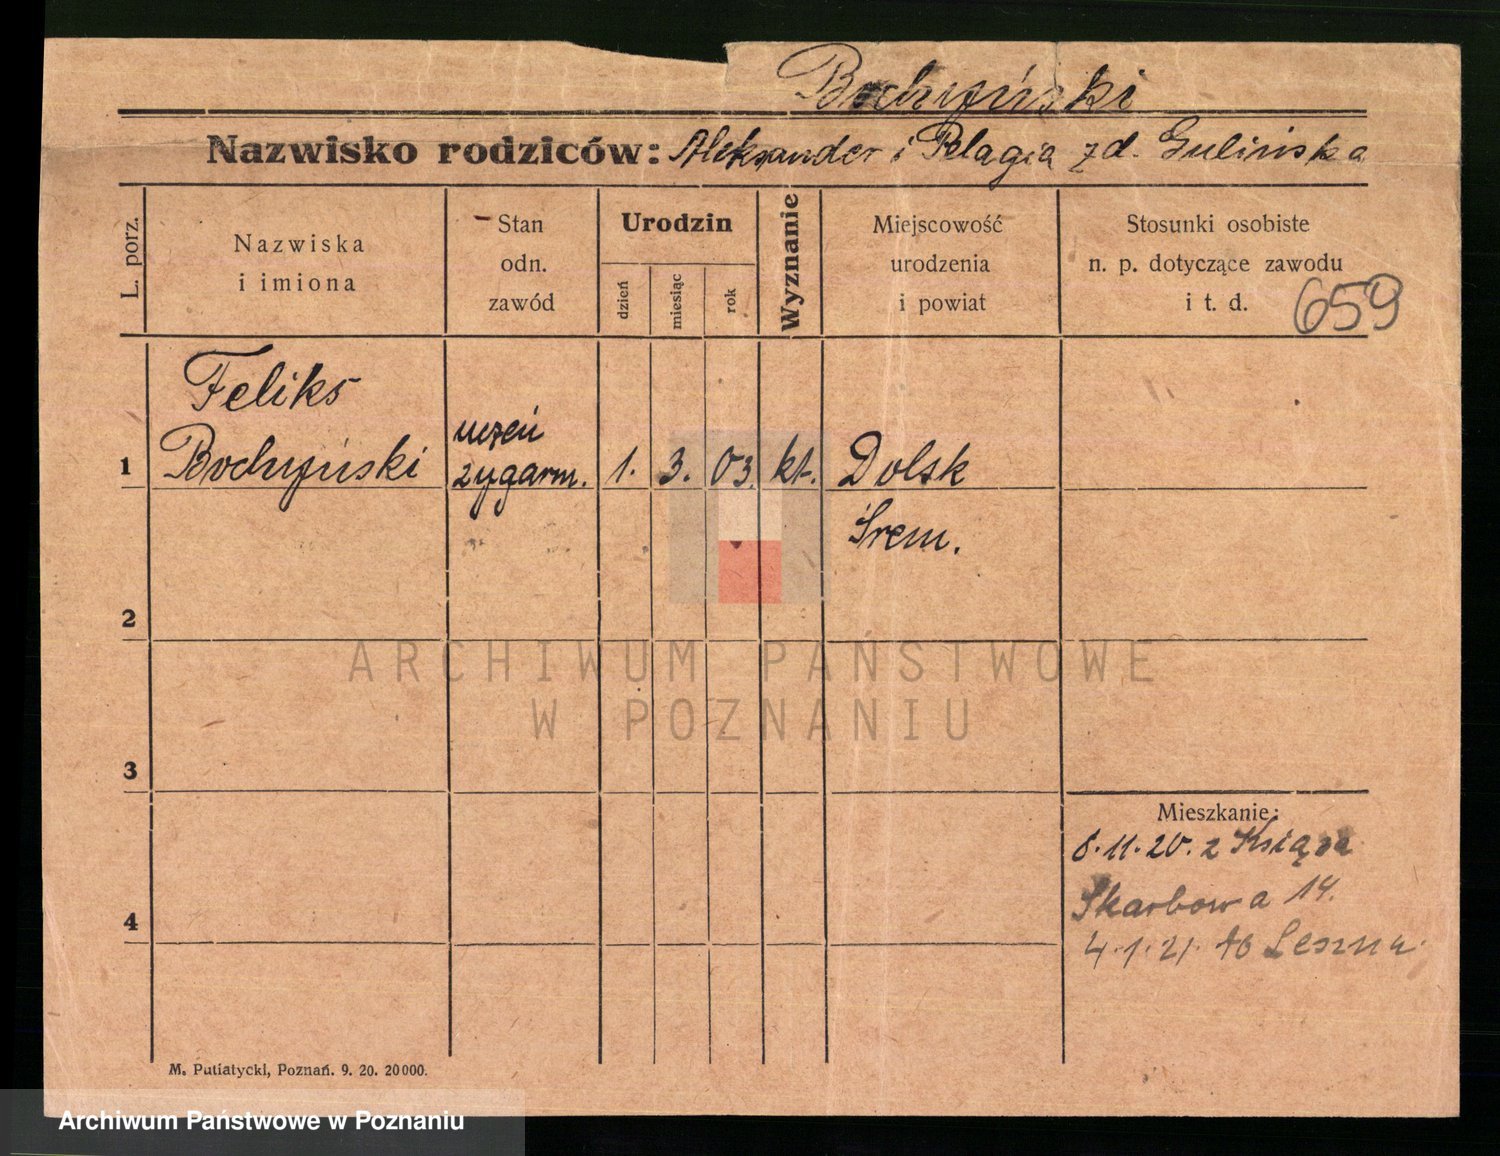 Bochyński
Nazwisko rodziców: Aleksander i Pelagia zd. Gulińska
L. porz.
Nazwiska
i imiona
Stan
odn.
zawód
Urodzin
dzień
miesiąc
rok
Wyznanie
Miejscowość
urodzenia
i powiat
Stosunki osobiste
n. p. dotyczące zawodu
i t. d.
659
1
Feliks
Bochyński
uczeń
zygarm.
1.
3.
03.
kt.
Dolsk
Śrem.
2
3
4
Mieszkanie:
8.11.20. z Książa
Skarbowa 14.
4.1.21. do Leszna.
M. Putiatycki, Poznań. 9. 20. 20000.
ARCHIWUM PAŃSTWOWE
W POZNANIU
Archiwum Państwowe w Poznaniu